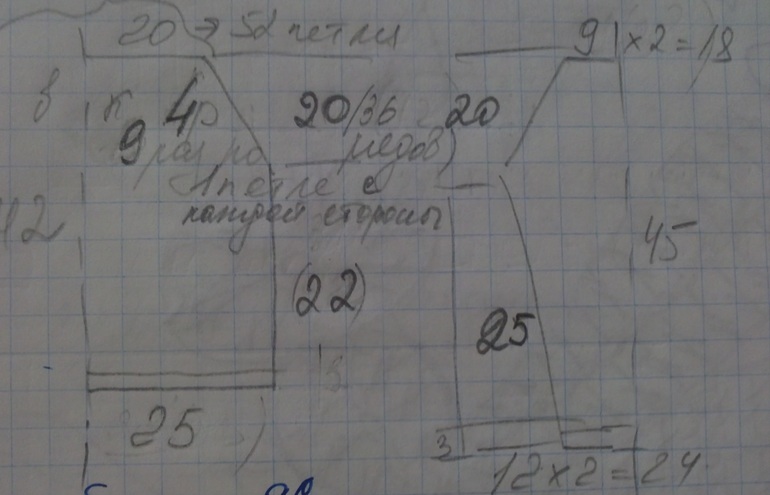 20 → 52 петли
9 | x 2 = 18
в к 4р 20/36 20
9 раз по рядов)
1 петле с
каждой стороны
42
45
(22)
25
25
3
12 x 2 = 24